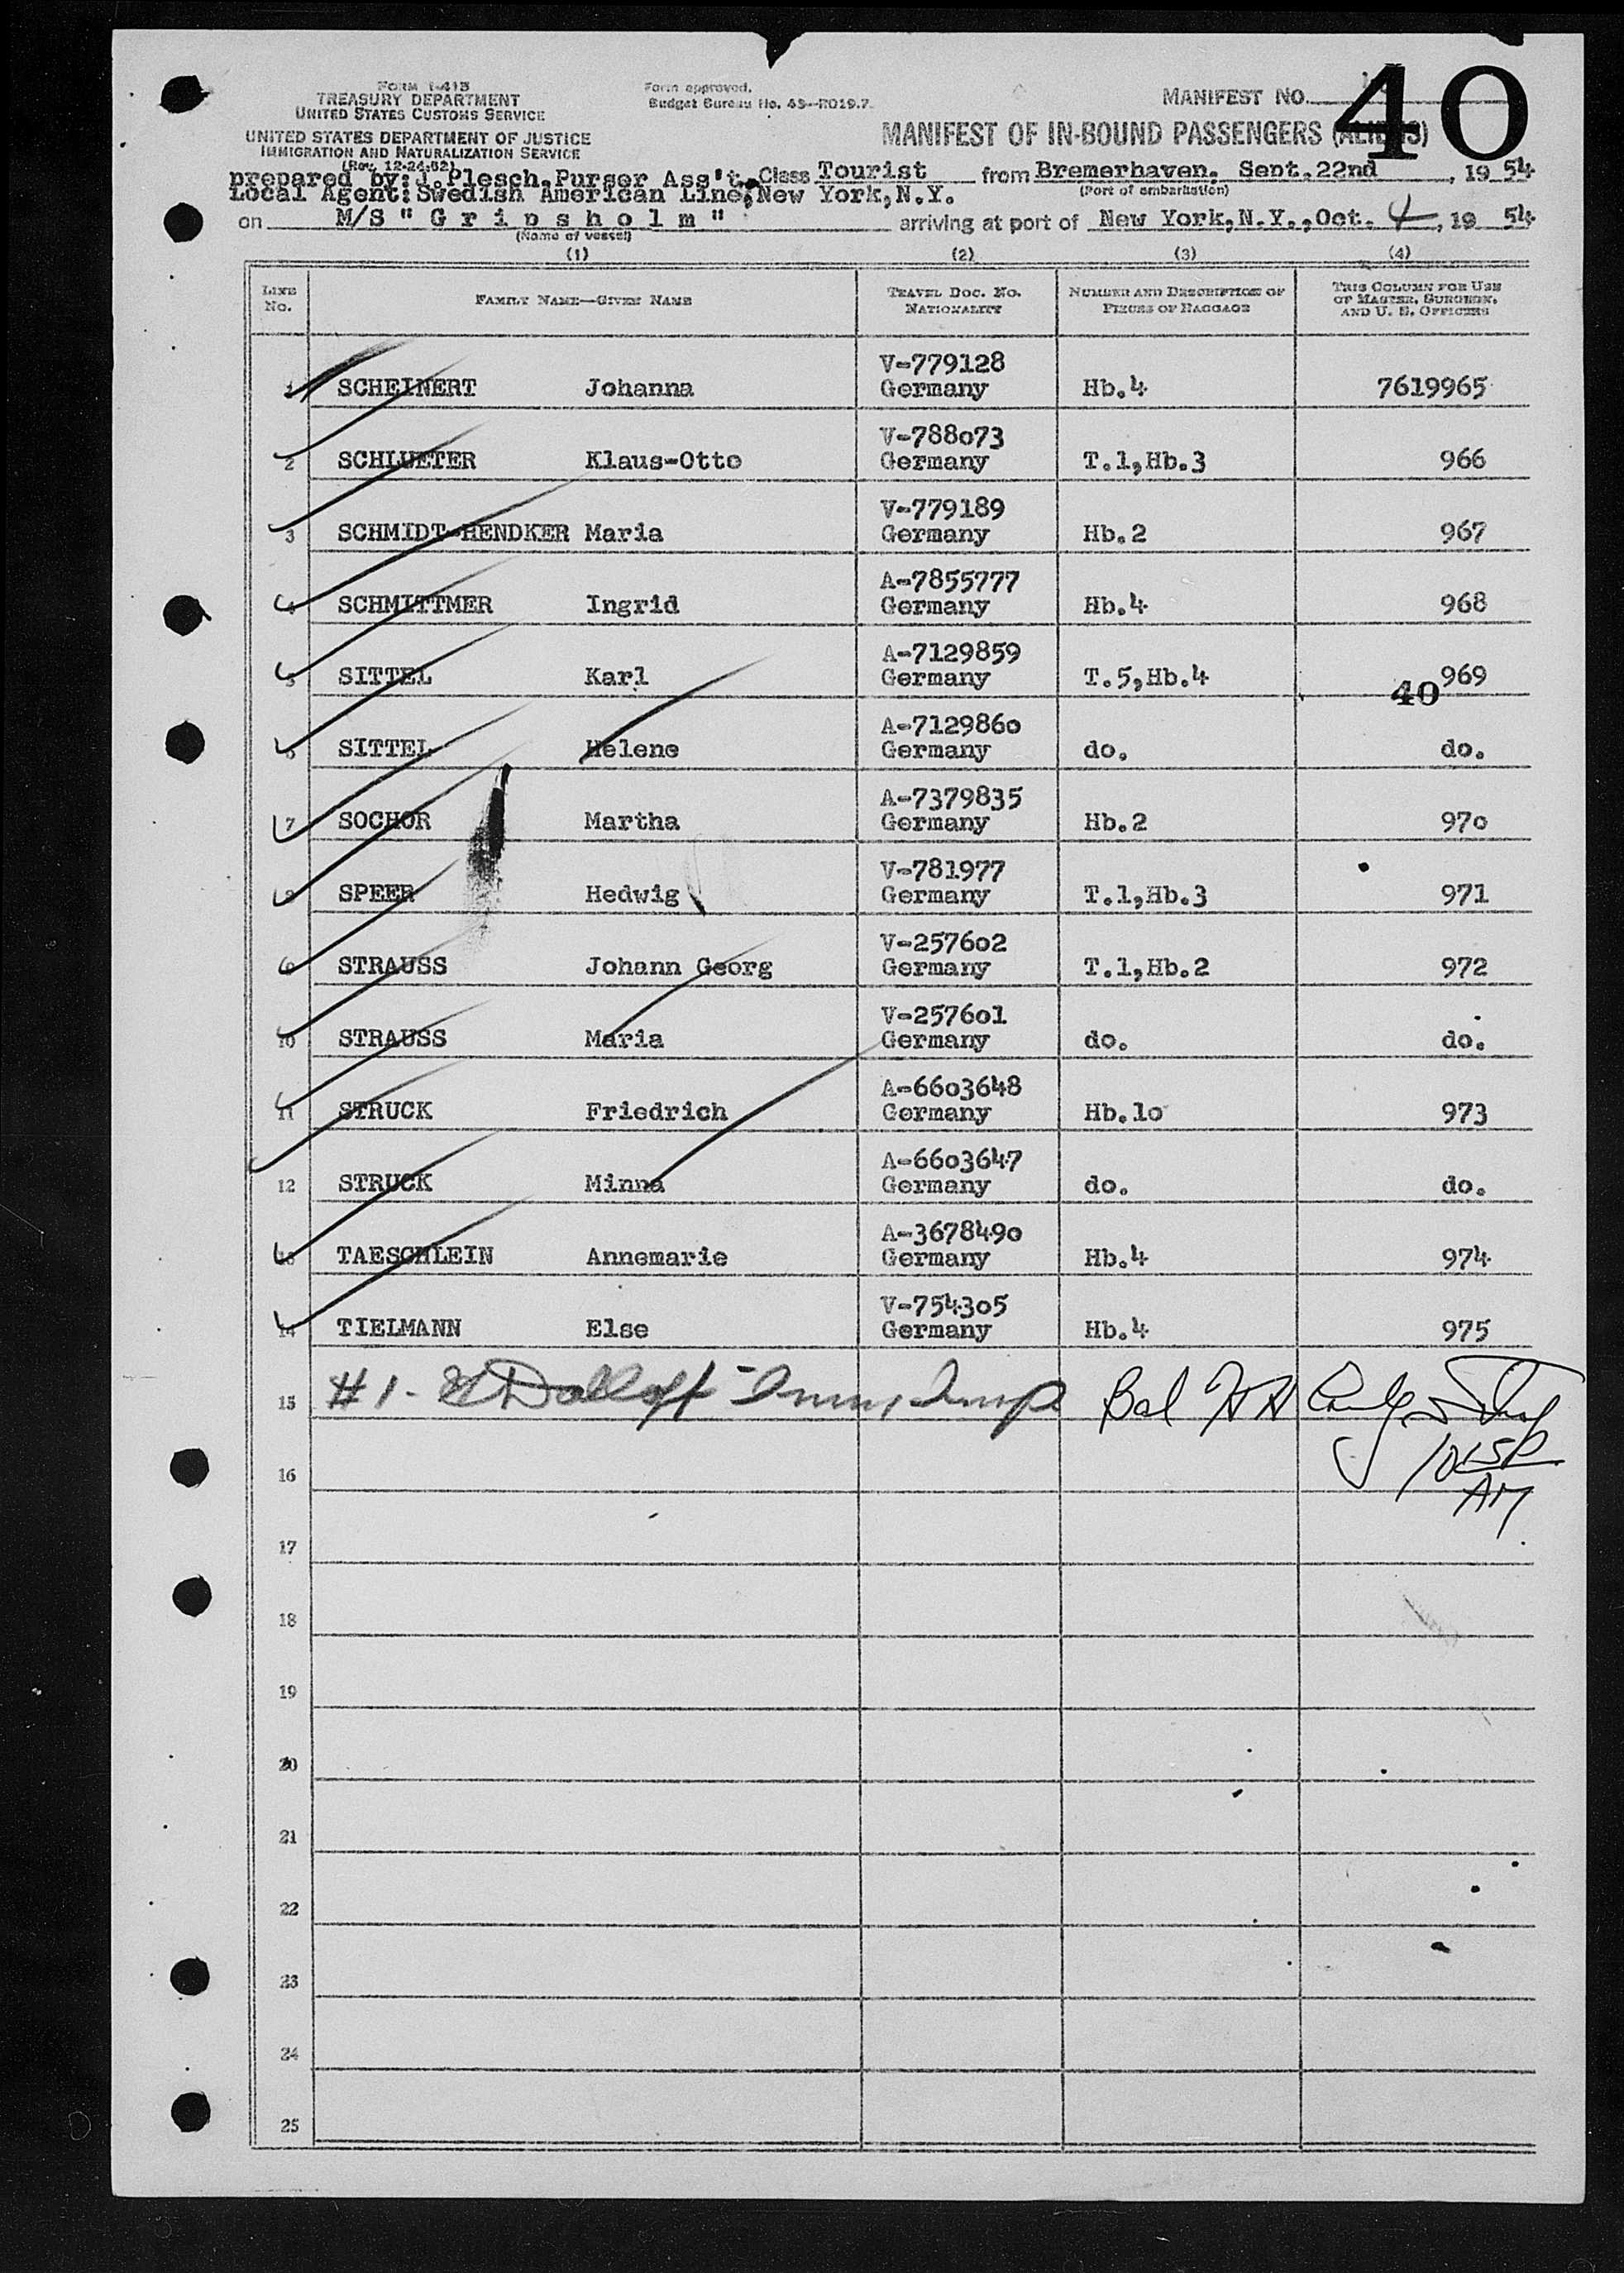 40
FORM I-418
TREASURY DEPARTMENT
UNITED STATES CUSTOMS SERVICE
UNITED STATES DEPARTMENT OF JUSTICE
IMMIGRATION AND NATURALIZATION SERVICE
(Rev. 12-24-52)
Form approved.
Budget Bureau No. 43-R019.7.
MANIFEST NO.
MANIFEST OF IN-BOUND PASSENGERS (ALIENS)
prepared by: J. Plesch, Purser Ass't. Class Tourist from Bremerhaven, Sept.22nd, 19 54
Local Agent: Swedish American Line, New York, N.Y. (Port of embarkation)
on M/S "Gripsholm" arriving at port of New York, N.Y., Oct. 4, 19 54
(Name of vessel)
(1) (2) (3) (4)
LINE No. FAMILY NAME—GIVEN NAME TRAVEL DOC. NO. NATIONALITY NUMBER AND DESCRIPTION OF PIECES OF BAGGAGE THIS COLUMN FOR USE OF MASTER, SURGEON, AND U. S. OFFICERS
V-779128
1 SCHEINERT Johanna Germany Hb.4 7619965
V-788073
2 SCHLUETER Klaus-Otto Germany T.1,Hb.3 966
V-779189
3 SCHMIDT-HENDKER Maria Germany Hb.2 967
A-7855777
4 SCHMITTMER Ingrid Germany Hb.4 968
A-7129859
5 SITTEL Karl Germany T.5,Hb.4 969
40
A-7129860
6 SITTEL Helene Germany do. do.
A-7379835
7 SOCHOR Martha Germany Hb.2 970
V-781977
8 SPEER Hedwig Germany T.1,Hb.3 971
V-257602
9 STRAUSS Johann Georg Germany T.1,Hb.2 972
V-257601
10 STRAUSS Maria Germany do. do.
A-6603648
11 STRUCK Friedrich Germany Hb.10 973
A-6603647
12 STRUCK Minna Germany do. do.
A-3678490
13 TAESCHLEIN Annemarie Germany Hb.4 974
V-754305
14 TIELMANN Else Germany Hb.4 975
15 #1- Bal
16
AM
17
18
19
20
21
22
23
24
25